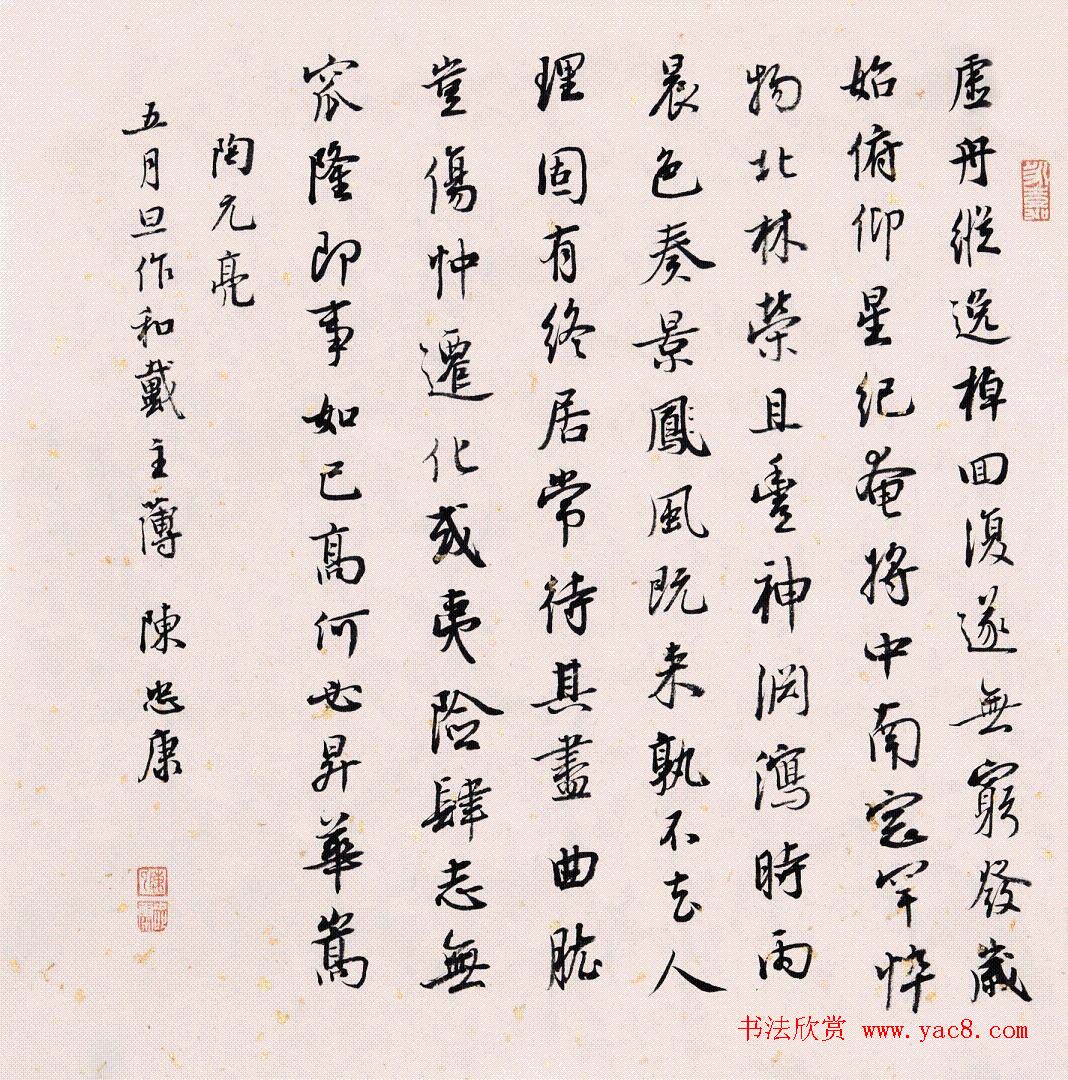 虛舟縱逸棹回復遂無窮發歲
始俯仰星紀奄將中南窓罕悴
物北林榮且豐神渊瀉時雨
晨色奏景鳳風既来孰不去人
理固有終居常待其盡曲肱
豈傷忡遷化或夷險肆志無
窊隆即事如已高何必昇華嵩
陶元亮
五月旦作和戴主薄 陳忠康
书法欣赏 www.yac8.com